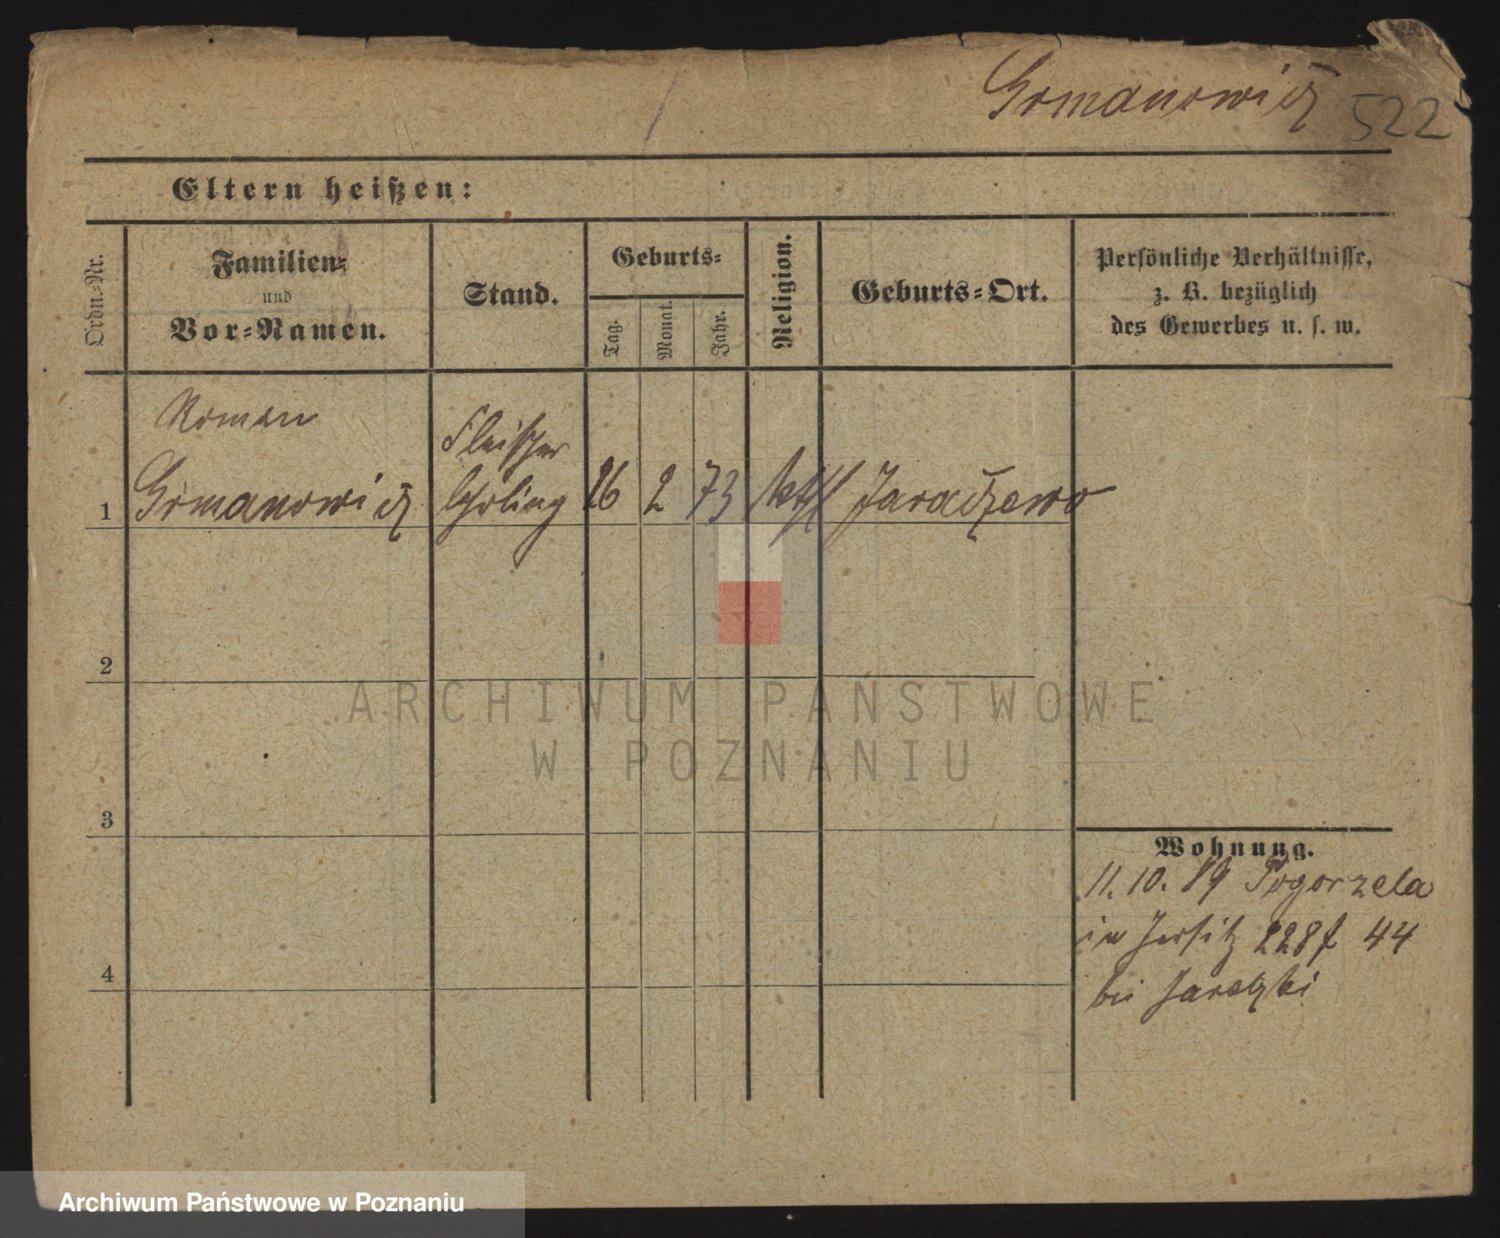 Gromanowicz 522
Eltern heißen:
Ordn.-Nr.
Familien-
und
Vor-Namen.
Stand.
Geburts-
Tag.
Monat.
Jahr.
Religion.
Geburts-Ort.
Persönliche Verhältnisse,
z. B. bezüglich
des Gewerbes u. s. w.
Roman
Fleischer
1 Gromanowicz 26 2 73 kth Jaraczewo
2
3
4
Wohnung.
11. 10. 89 Pogorzela
in Jersitz 228f 44
bei
ARCHIWUM PAŃSTWOWE
W POZNANIU
Archiwum Państwowe w Poznaniu